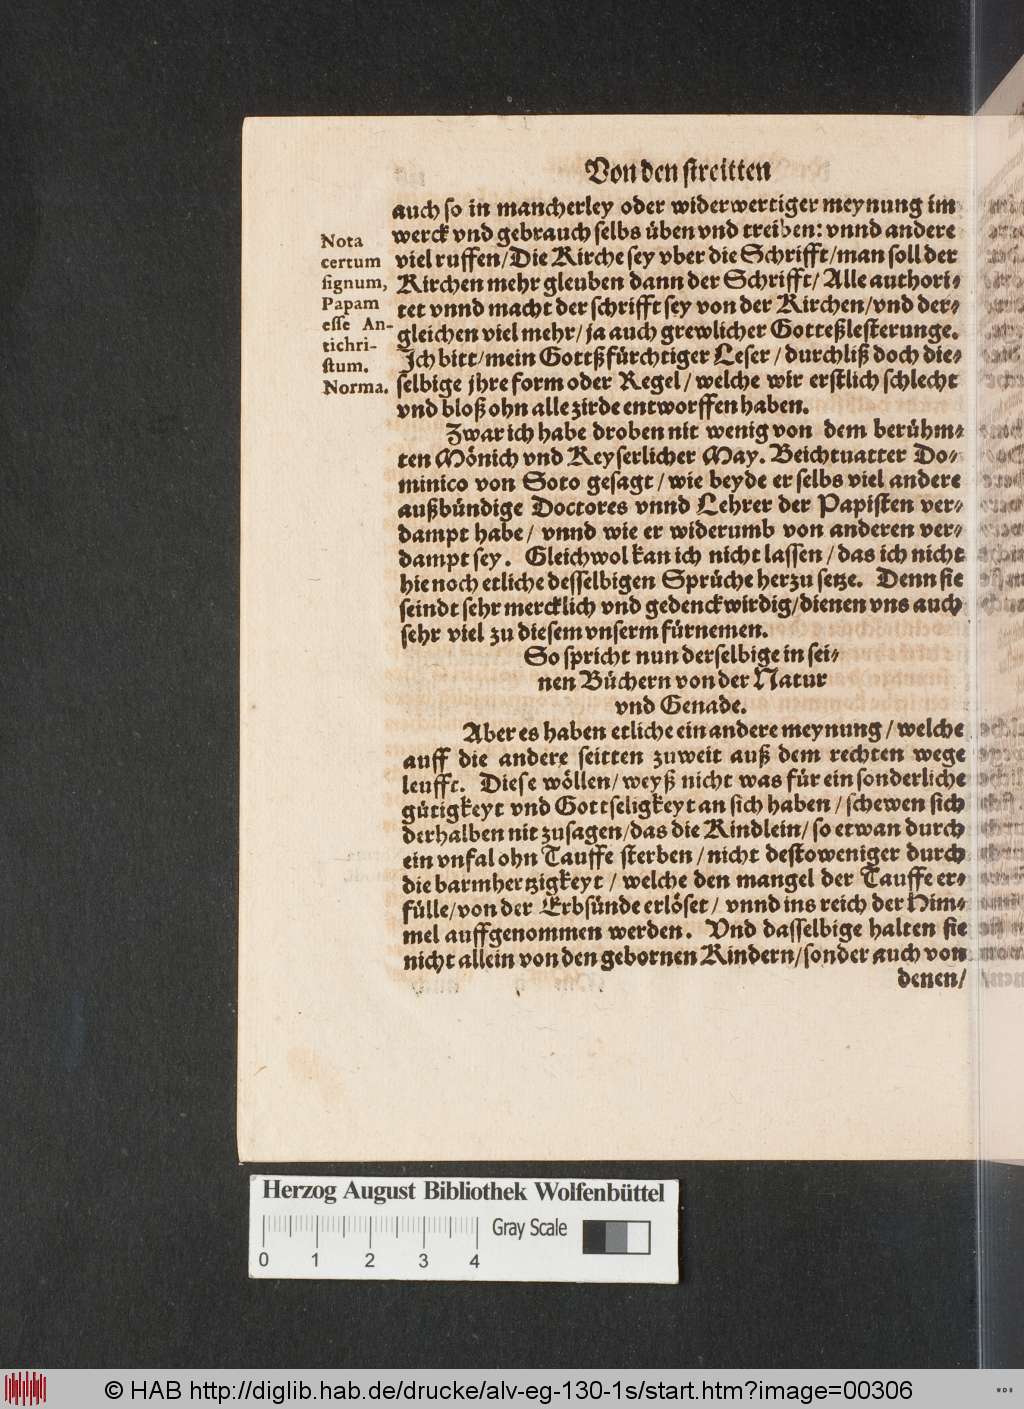 Von den streitten
auch so in mancherley oder widerwertiger meynung im
werck vnd gebrauch selbs üben vnd treiben: vnnd andere
viel ruffen/Die Kirche sey vber die Schrifft/man soll der
Kirchen mehr gleuben dann der Schrifft/Alle authori-
tet vnnd macht der schrifft sey von der Kirchen/vnd der-
gleichen viel mehr/ja auch grewlicher Gotteßlesterunge.
Ich bitt/mein Gottßfürchtiger Leser/durchliß doch die-
selbige jhre form oder Regel/welche wir erstlich schlecht
vnd bloß ohn alle zirde entworffen haben.
Nota
certum
signum,
Papam
esse An-
tichri-
stum.
Norma.
Zwar ich habe droben nit wenig von dem berühm-
ten Mönich vnd Keyserlicher May. Beichtuatter Do-
minico von Soto gesagt/wie beyde er selbs viel andere
außbündige Doctores vnnd Lehrer der Papisten ver-
dampt habe/ vnnd wie er widerumb von anderen ver-
dampt sey. Gleichwol kan ich nicht lassen/das ich nicht
hie noch etliche desselbigen Sprüche herzu setze. Denn sie
seindt sehr mercklich vnd gedenckwirdig/dienen vns auch
sehr viel zu diesem vnserm fürnemen.
So spricht nun derselbige in sei-
nen Büchern von der Natur
vnd Genade.
Aber es haben etliche ein andere meynung/welche
auff die andere seitten zuweit auß dem rechten wege
leufft. Diese wöllen/weyß nicht was für ein sonderliche
gütigkeyt vnd Gottseligkeyt an sich haben/schewen sich
derhalben nit zusagen/das die Kindlein/so etwan durch
ein vnfal ohn Tauffe sterben/nicht destoweniger durch
die barmhertzigkeyt/welche den mangel der Tauffe er-
fülle/von der Erbsünde erlöset/ vnnd ins reich der Him-
mel auffgenommen werden. Vnd dasselbige halten sie
nicht allein von den gebornen Kindern/sonder auch von
denen/
Herzog August Bibliothek Wolfenbüttel
Gray Scale
0 1 2 3 4
© HAB http://diglib.hab.de/drucke/alv-eg-130-1s/start.htm?image=00306